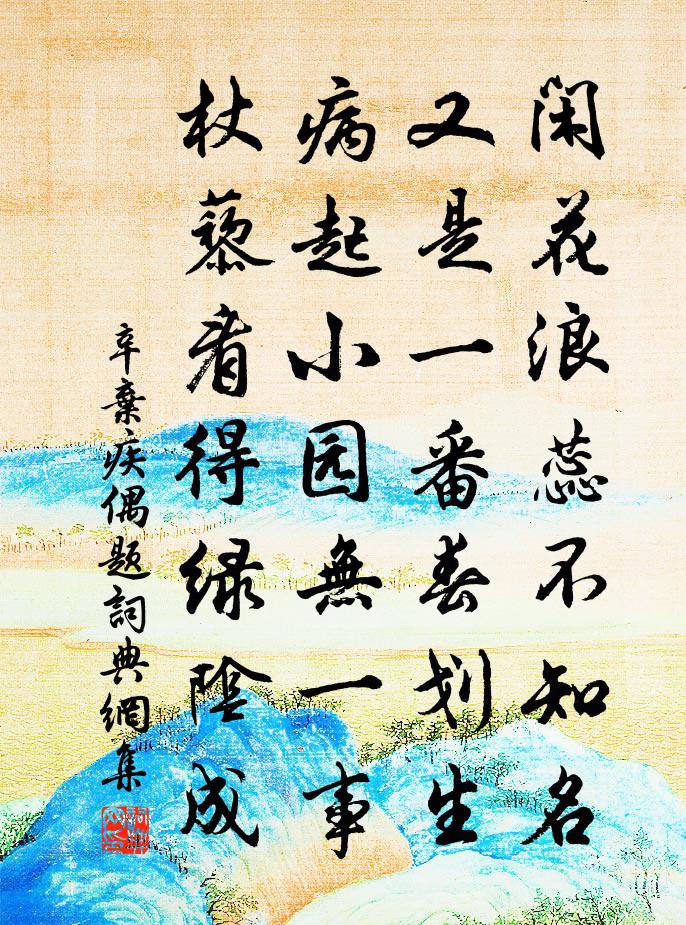 閑花浪蕊不知名
又是一番春划生
病起小园無一事
杖藜看得绿陰成
辛棄疾偶题詞典網集